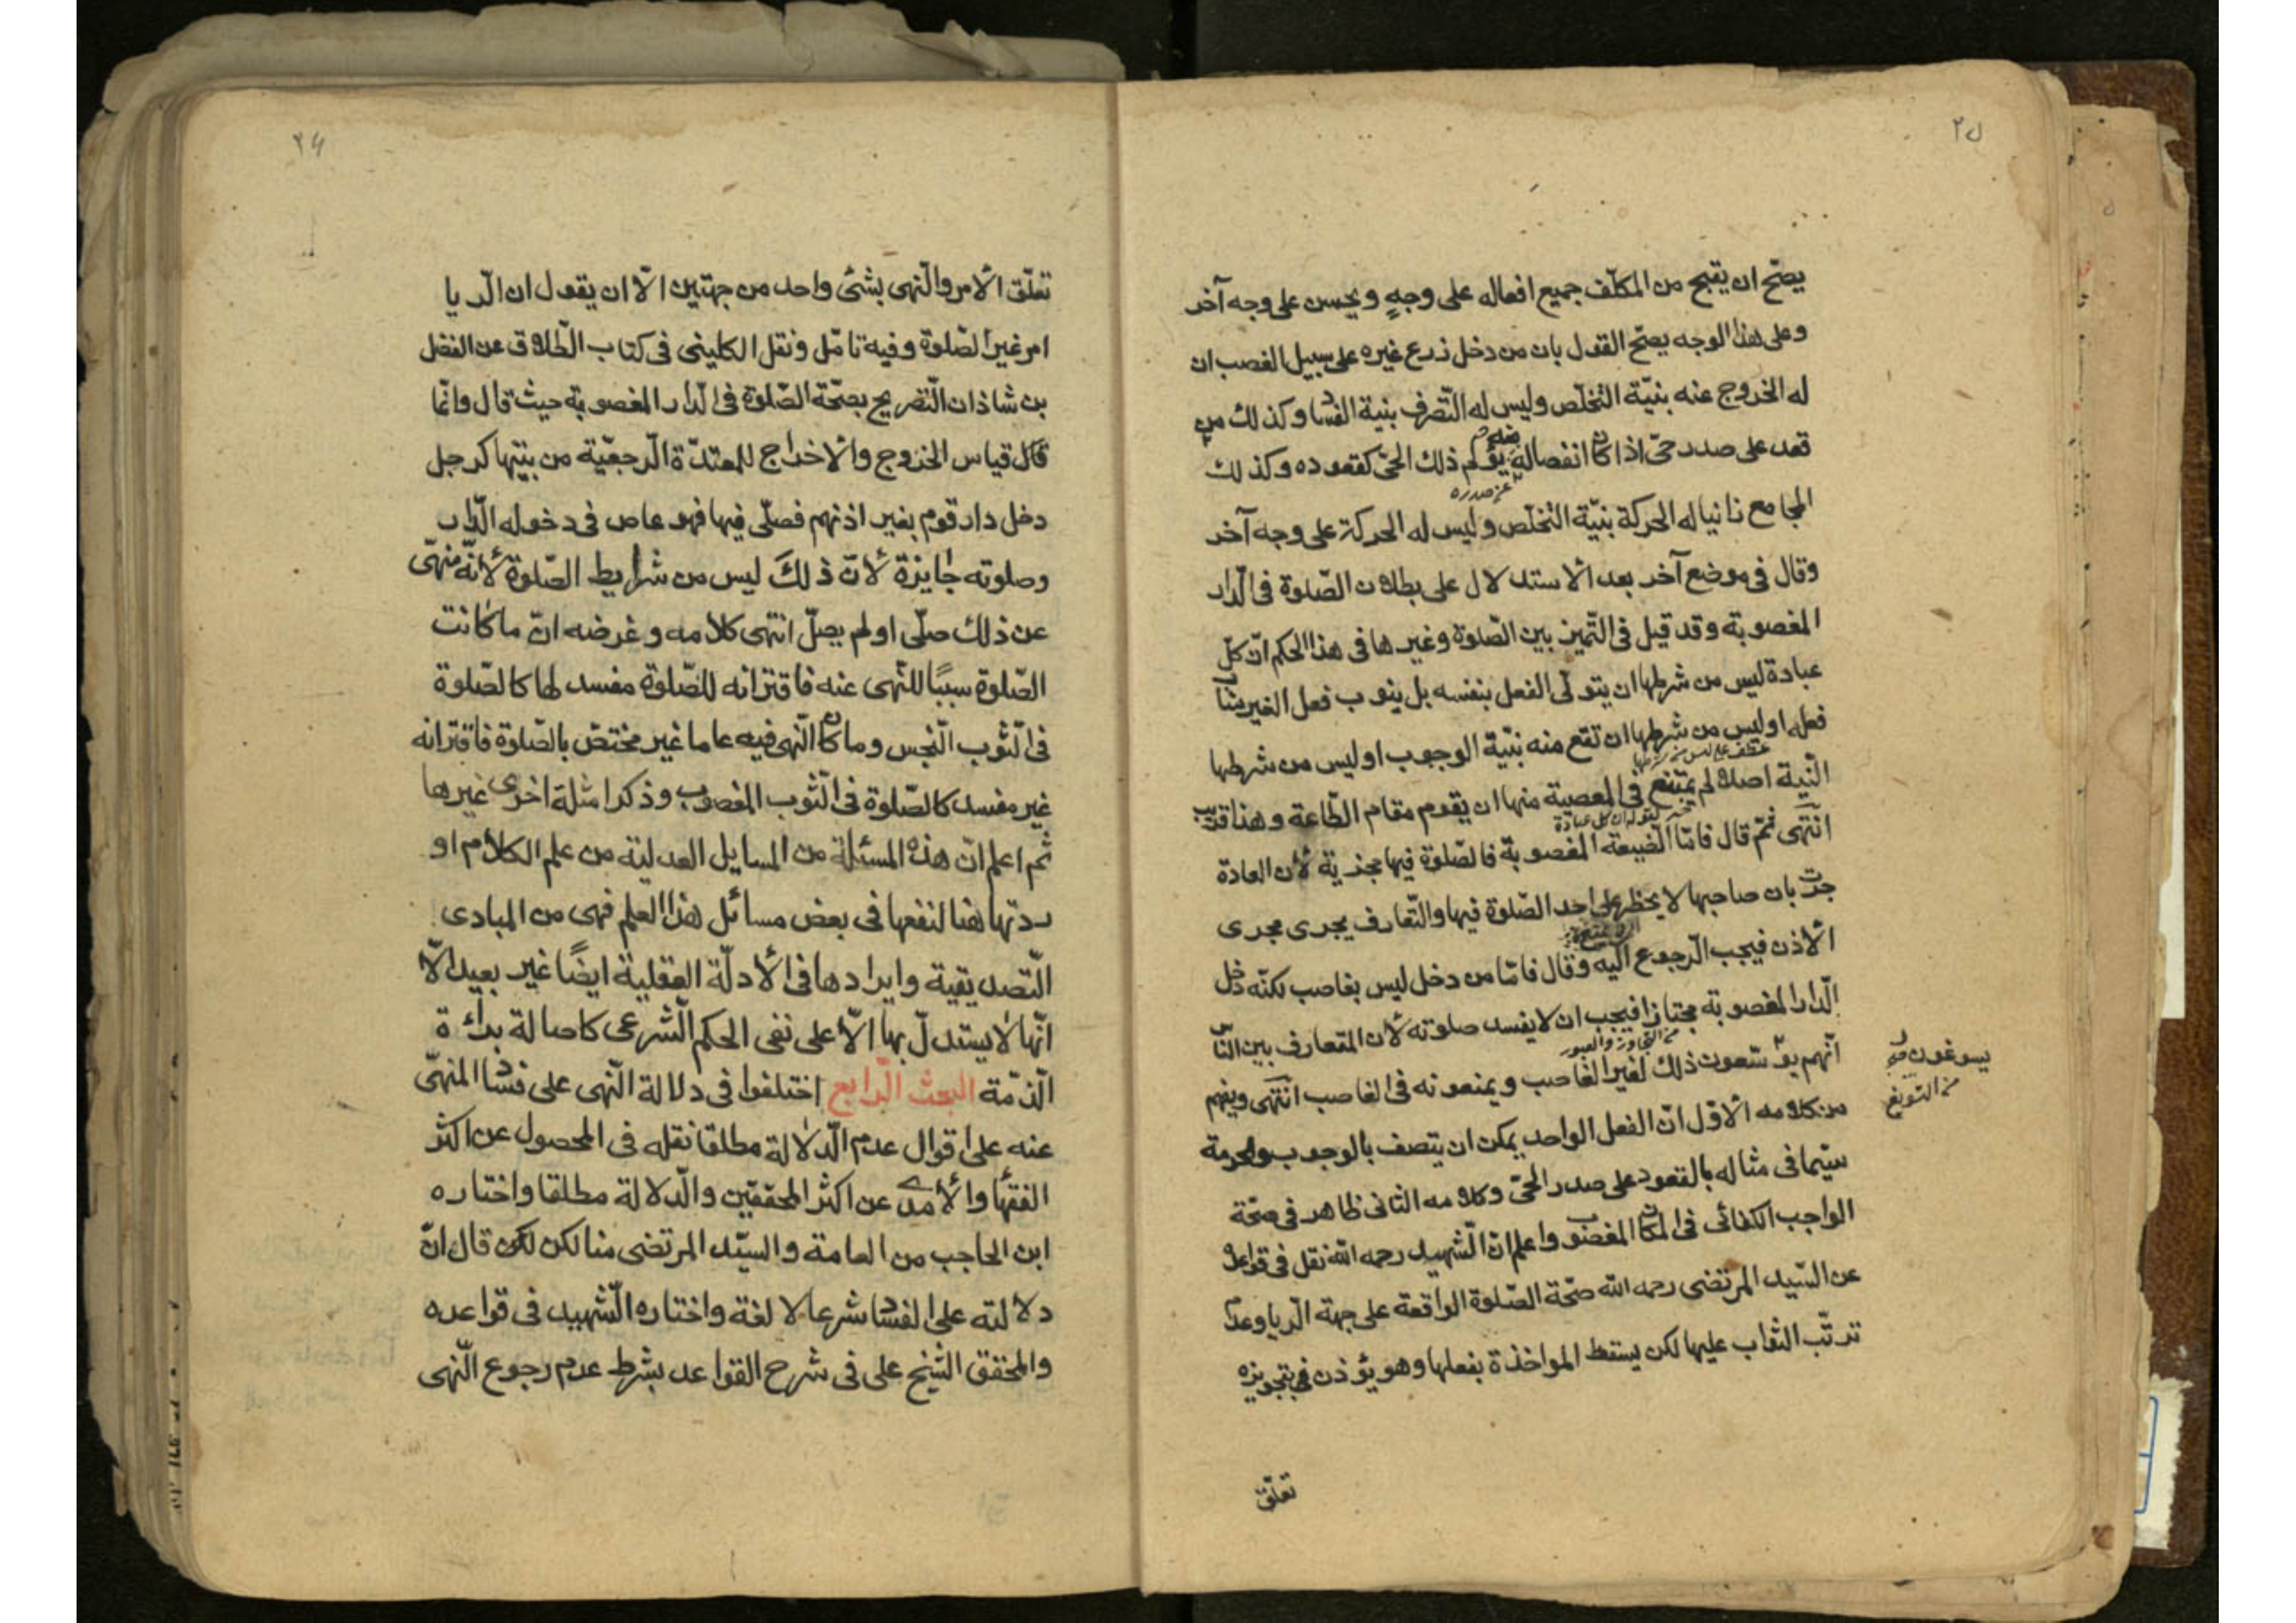 ٢٥
يصحّ ان يقبح من المكلّف جميع افعاله على وجهٍ ويحسن على وجه آخر
وعلى هذا الوجه يصحّ القول بان من دخل زرع غيره على سبيل الغصب ان
له الخروج عنه بنيّة التخلّص وليس له التّصرف بنية الفسا وكذلك من
قعد على صدر حىّ اذا كا انفصاله يؤلم ذلك الحىّ كقعوده وكذلك
عن صدره
المجامع زانيا له الحركة بنيّة التخلّص وليس له الحركة على وجه آخر
وقال فى موضع آخر بعد الاستدلال على بطلان الصّلوة فى الدّار
المغصوبة وقد قيل فى التّميز بين الصّلوة وغيرها فى هذا الحكم انّ كلّ
عبادة ليس من شرطها ان يتولّى الفعل بنفسه بل ينوب فعل الغير مناب
فعله او ليس من شرطها ان تقع منه بنيّة الوجوب او ليس من شرطها
عطف على ليس من شرطها
النّية اصلا لم يمتنع فى المعصية منها ان يقوم مقام الطّاعة وهذا قريب
خبر لقوله ان كل عبادة
انتهى ثمّ قال فامّا الضّيعة المغصوبة فالصّلوة فيها مجزية لأن العادة
جرت بان صاحبها لا يحظر على احد الصّلوة فيها والتّعارف يجرى مجرى
الأذن فيجب الرّجوع اليه وقال فامّا من دخل ليس بغاصب لكنّه دخل
الدّار المغصوبة مجتازا فيجب ان لا يفسد صلوته لأن المتعارف بين النّاس
من التجاوز والعبور
انّهم يوّسّعون ذلك لغير الغاصب ويمنعونه فى الغاصب انتهى ويفهم
يسوغون
من التسويغ
من كلامه الأوّل انّ الفعل الواحد يمكن ان يتصف بالوجوب والحرمة
سيّما فى مثاله بالقعود على صدر الحىّ وكلامه الثانى ظاهر فى صحّة
الواجب الكفائى فى المكا المغصوب واعلم انّ الشّهيد رحمه الله نقل فى قواعده
عن السّيد المرتضى رحمه الله صحّة الصّلوة الواقعة على جهة الرّيا وعدم
ترتّب الثواب عليها لكن يسقط المواخذة بفعلها وهو يؤذن بتجويزه
تعلّق
٢٤
تعلّق الأمر والنّهى بشئ واحد من جهتين الّا ان يقول ان الرّيا
امر غير الصّلوة وفيه تامّل ونقل الكلينى فى كتاب الطّلاق عن الفضل
بن شاذان التّصريح بصحّة الصّلوة فى الدّار المغصوبة حيث قال وانّما
قال قياس الخروج والاخراج للمعتدّة الرّجعيّة من بيتها كرجل
دخل دار قوم بغير اذنهم فصلّى فيها فهو عاص فى دخوله الدّار
وصلوته جايزة لأنّ ذلك ليس من شرايط الصّلوة لأنّه منهىّ
عن ذلك صلّى او لم يصلّ انتهى كلامه وغرضه انّ ما كانت
الصّلوة سببًا للنّهى عنه فاقترانه للصّلوة مفسد لها كالصّلوة
فى الثّوب النّجس وما كا النّهى فيه عاما غير مختصّ بالصّلوة فاقترانه
غير مفسد كالصّلوة فى الثّوب المغصوب وذكر امثلة اخرى غيرها
ثم اعلم انّ هذه المسئلة من المسايل العدلية من علم الكلام او
ردتها هنا لنفعها فى بعض مسائل هذا العلم فهى من المبادى
التّصديقية وايرادها فى الأدلّة العقلية ايضًا غير بعيد الّا
انّها لا يستدلّ بها الّا على نفى الحكم الشّرعى كاصالة برائة
الذّمة البحث الرّابع اختلفوا فى دلالة النّهى على فسا المنهىّ
عنه على اقوال عدم الدّلالة مطلقا نقله فى المحصول عن اكثر
الفقها والآمدى عن اكثر المحققين والدّلالة مطلقا واختاره
ابن الحاجب من العامة والسيّد المرتضى منا لكن لكن قال انّ
دلالته على الفسا شرعا لا لغة واختاره الشّهيد فى قواعده
والمحقق الشيخ على فى شرح القواعد بشرط عدم رجوع النّهى